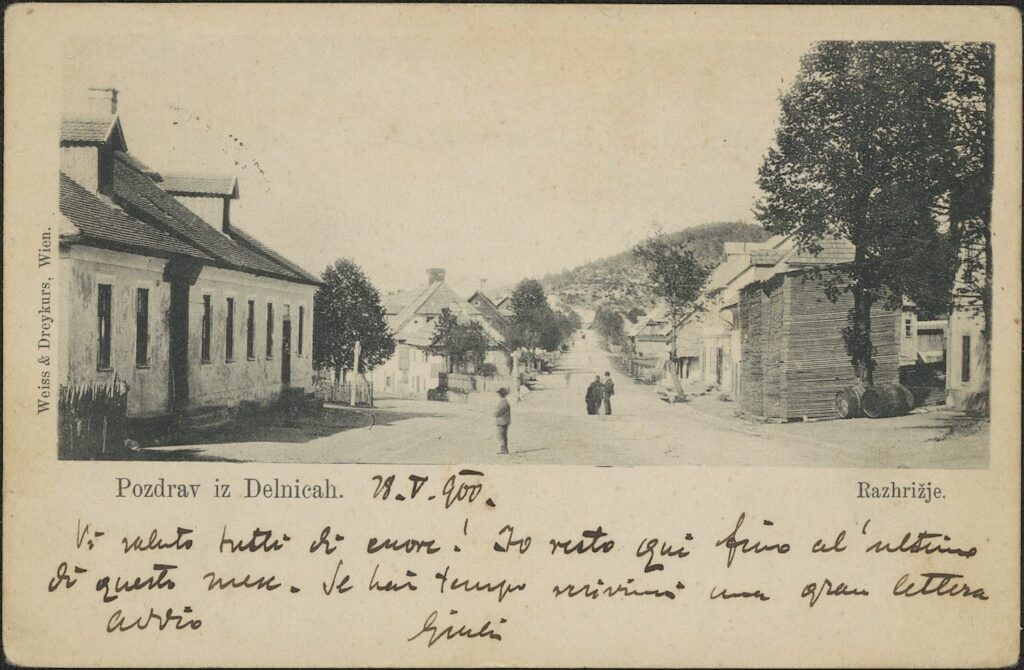 Weiss & Dreykurs, Wien.
Pozdrav iz Delnicah. 28. V. 900. Razhrižje.
Vi saluto tutti di cuore! Io resto qui fino al'ultimo
di questo mese. Se hai tempo scrivimi una gran lettera
Addio